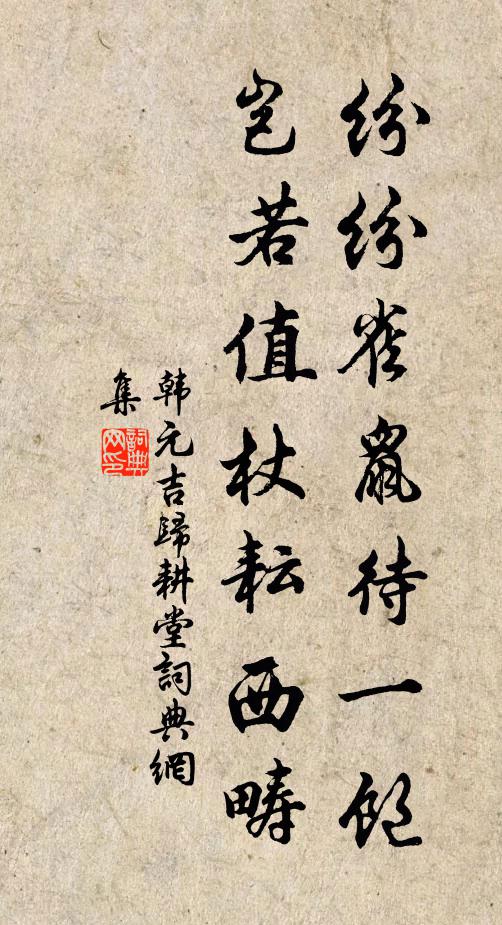 纷纷雀鼠待一饱
岂若值杖耘西畴
韩元吉歸耕堂詞典網
集
詞典
网印